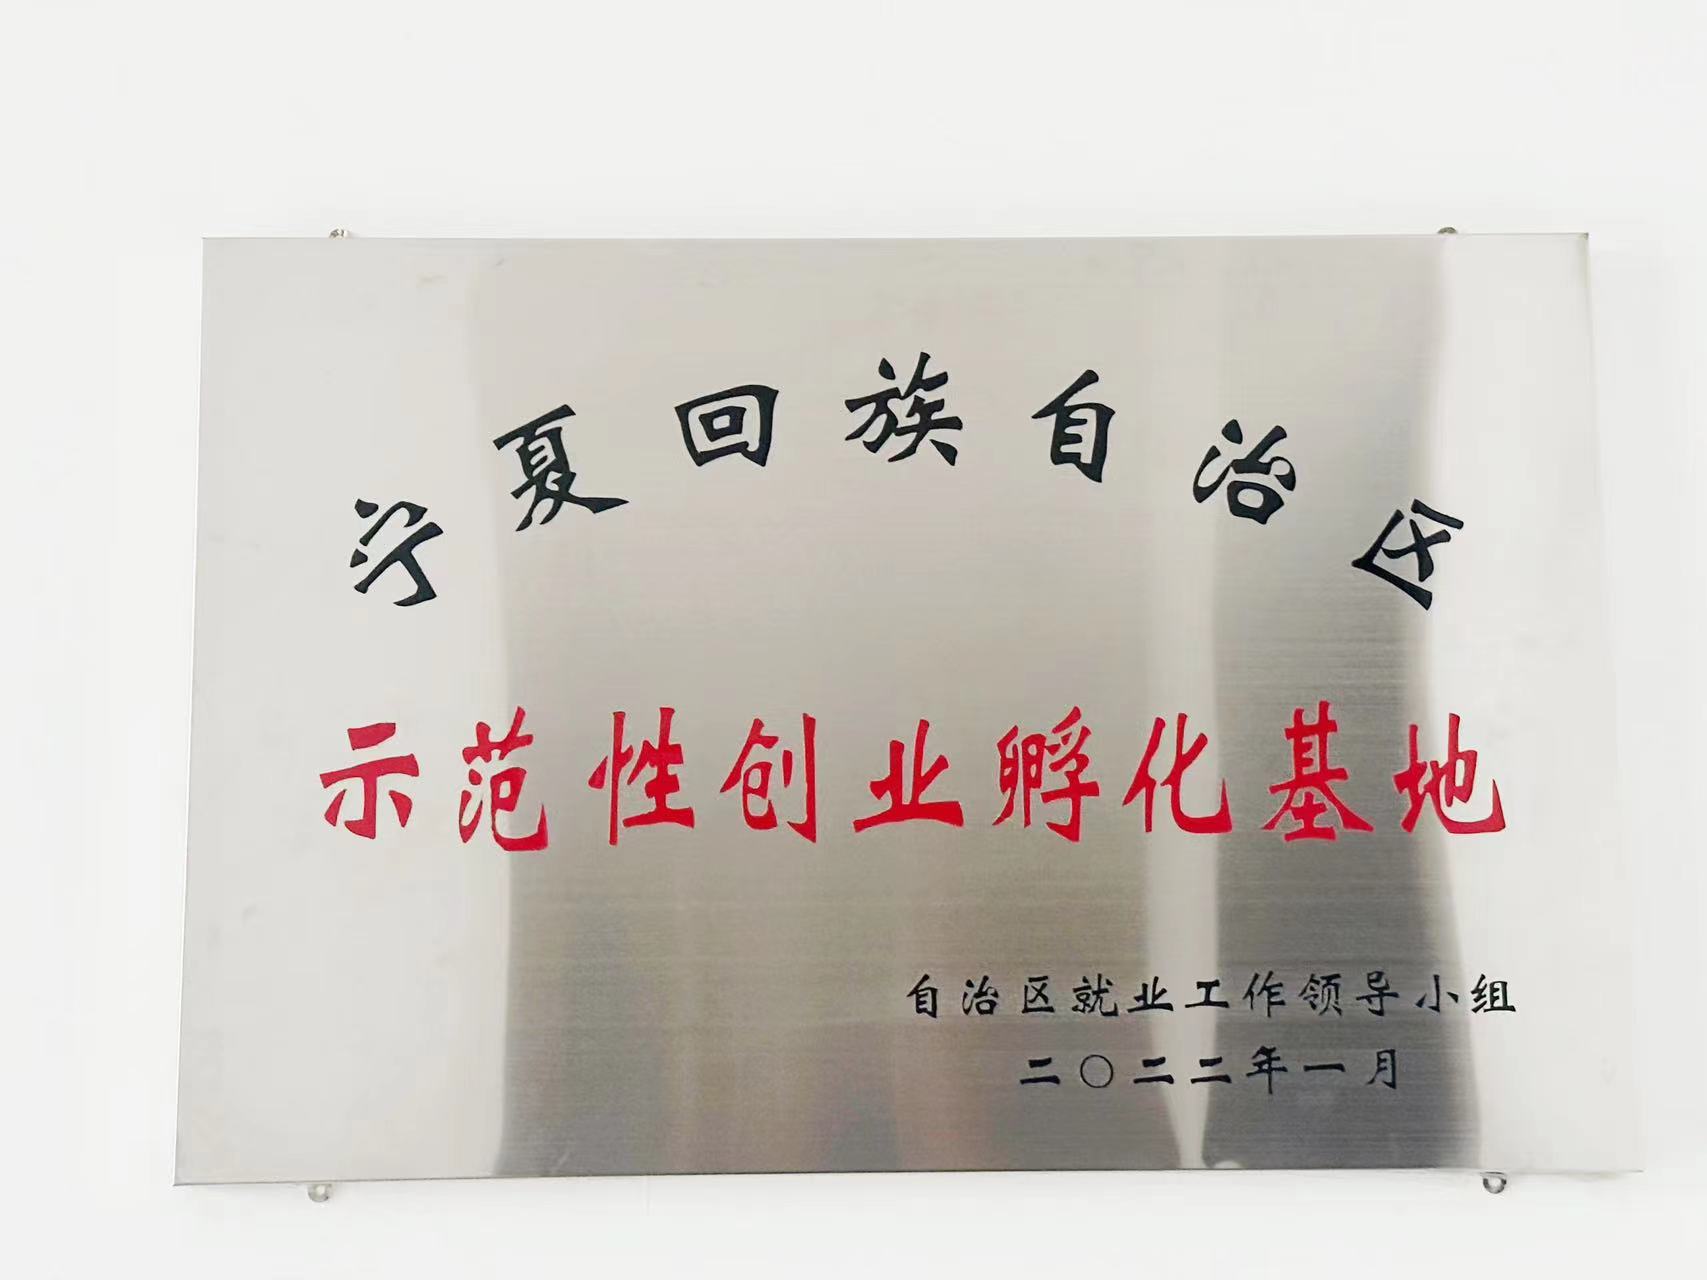 宁夏回族自治区
示范性创业孵化基地
自治区就业工作领导小组
二〇二二年一月